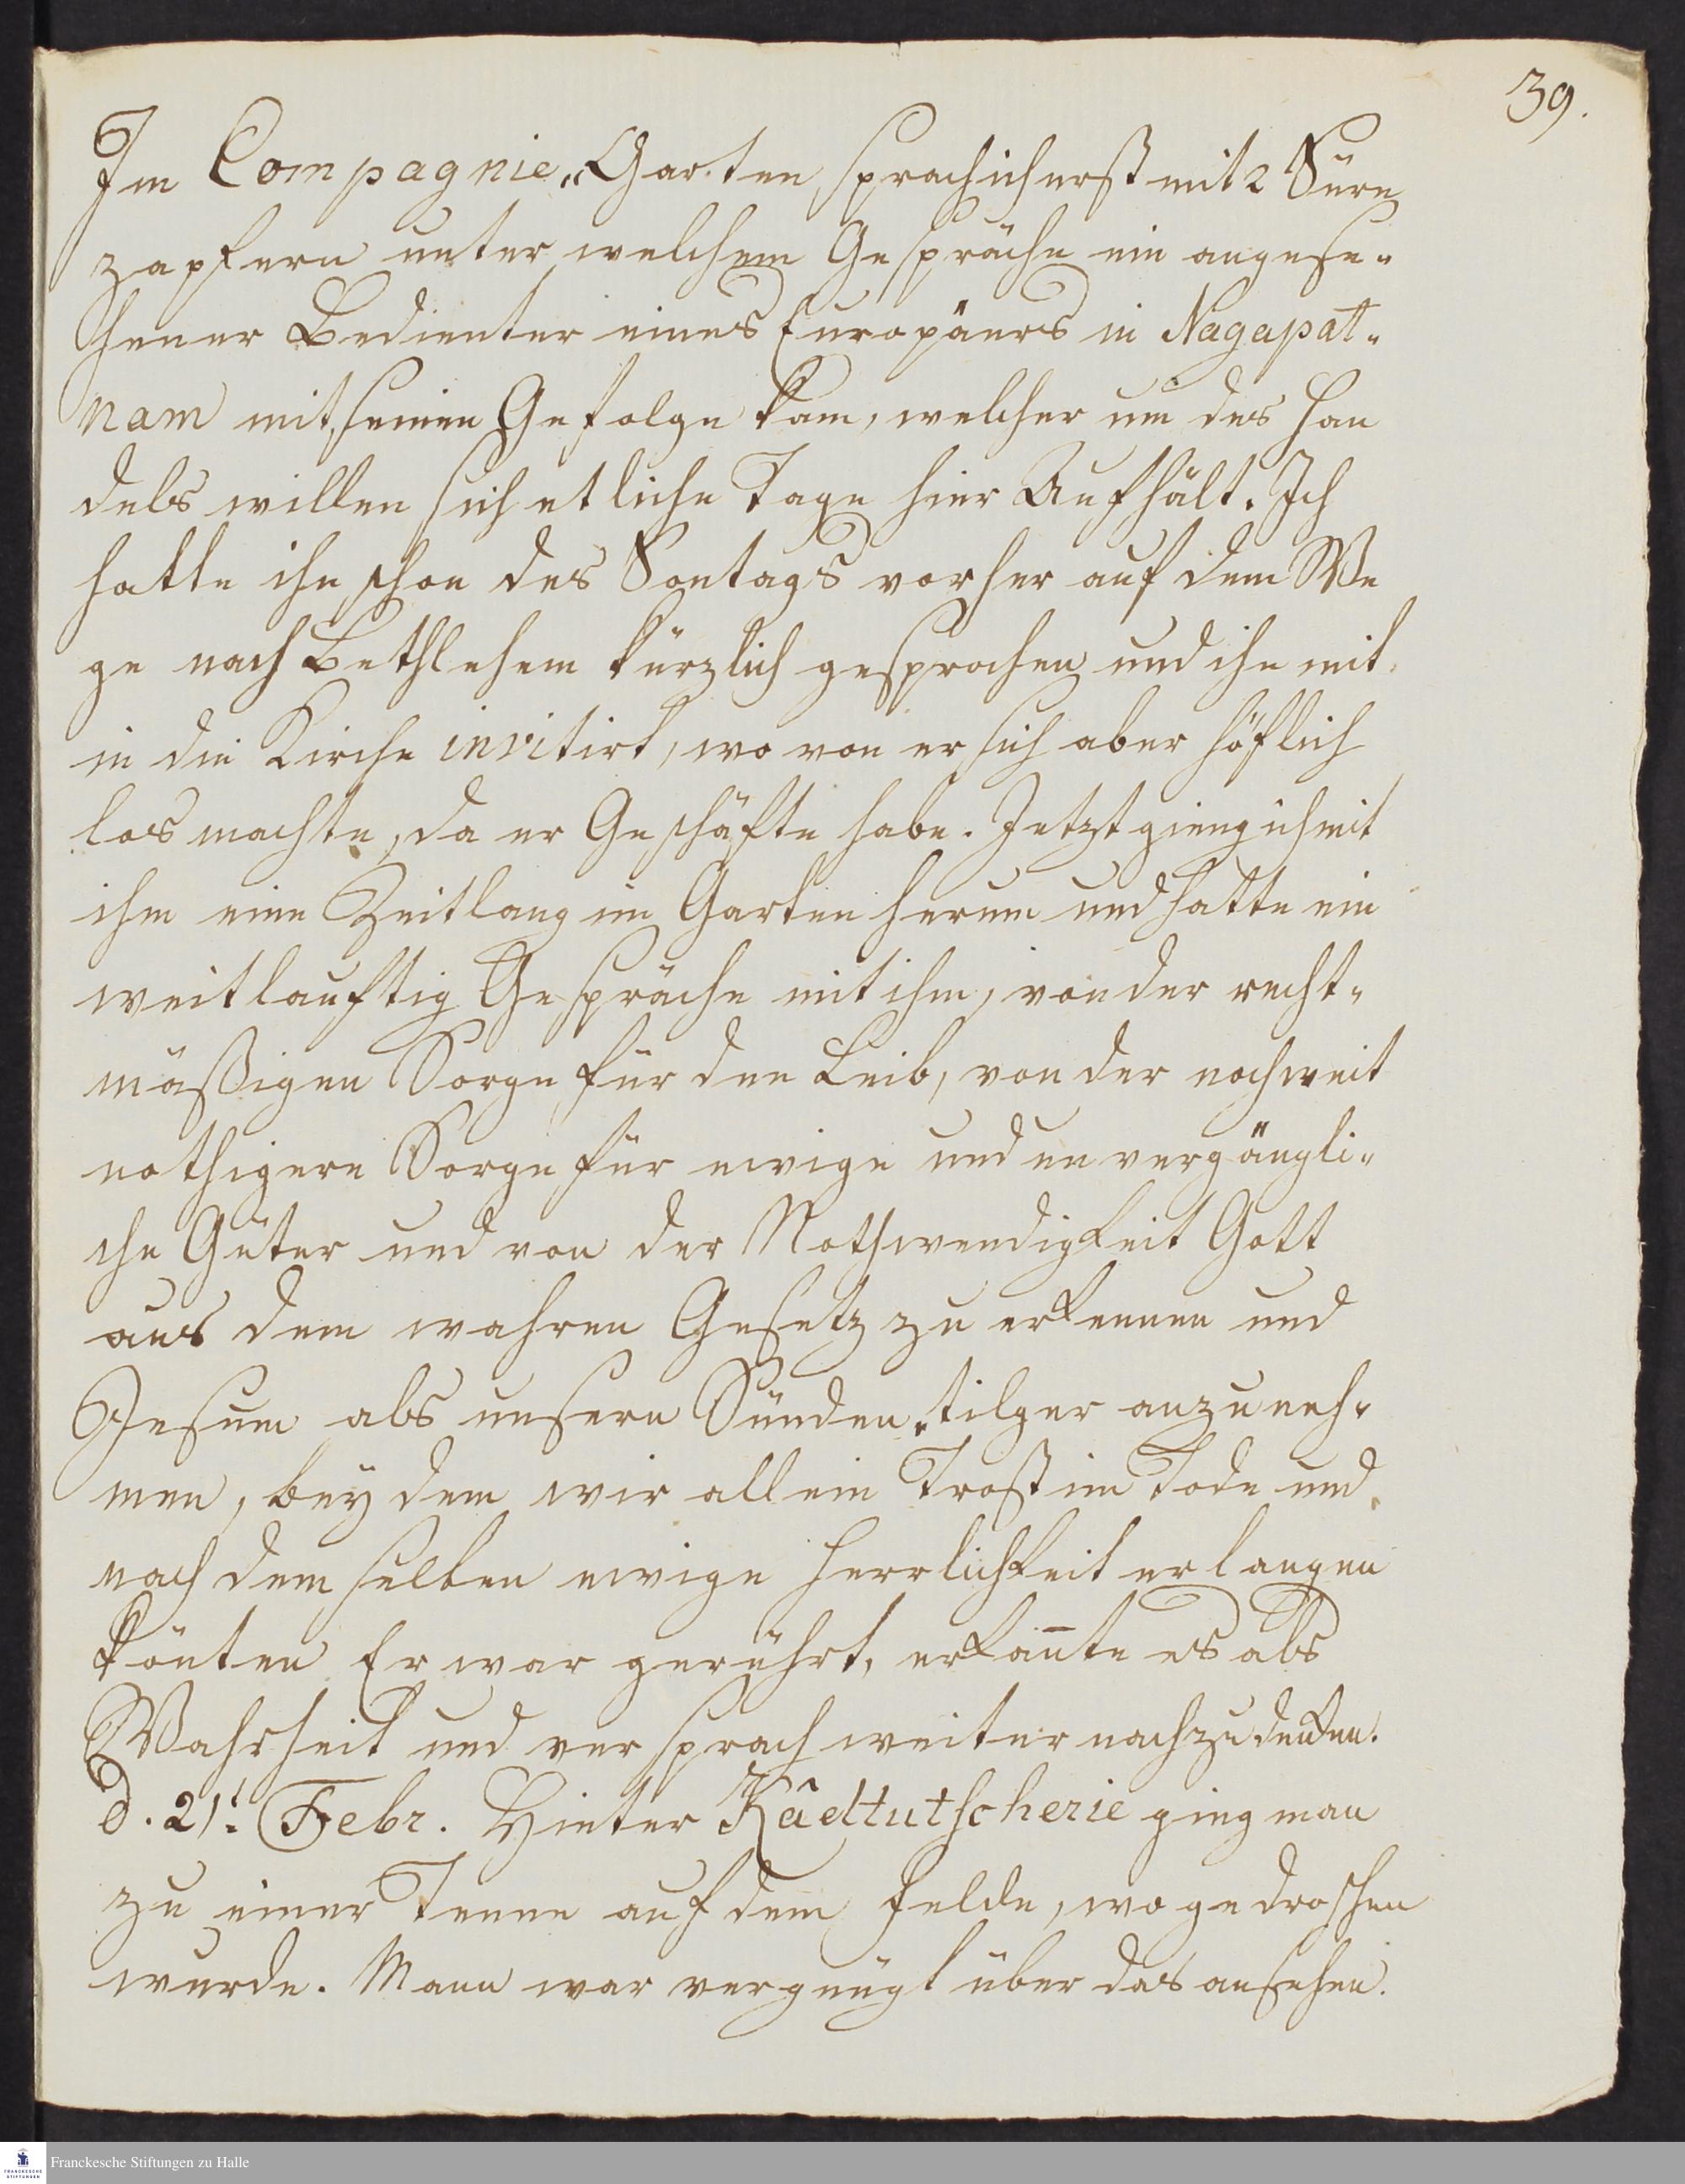 39.
Im Compagnie„Garten sprach ich erst mit 2 Süre
zapfern unter welchem Gespräche ein angese„
hener Bedienter eines Europäers in Nagapat„
nam mit seinen Gefolge kam, welcher um des Han
dels willen sich etliche Tage hier Aufhält. Ich
hatte ihn schon des Sontags vorher auf dem We
ge nach Bethlehem kürzlich gesprochen und ihn mit
in die Kirche invitirt, wo von er sich aber höflich
los machte, da er Geschäfte habe. Jetzt gieng ich mit
ihm eine Zeitlang im Garten herum und hatte ein
weitlauftig Gespräche mit ihm, von der recht„
mäßigen Sorge für den Leib, von der noch weit
nothigern Sorge für ewige und unvergängli„
che Güter und von der Nothwendigkeit Gott
aus dem wahren Gesetz zu erkennen und
Jesum als unsern Sünden„tilger anzuneh„
men, bey dem wir allein Trost im Tode und
nach dem selben ewige Herrlichkeit erlangen
könten Er war gerührt, erkan̅te es als
Wahrheit und versprach weiter nachzudenken.
d. 21t. Febr. Hinter Kâdtutscherie ging man
zu einer Tenne auf dem Felde, wo gedroschen
wurde. Mann war vergnügt über das ansehen.
Franckesche Stiftungen zu Halle